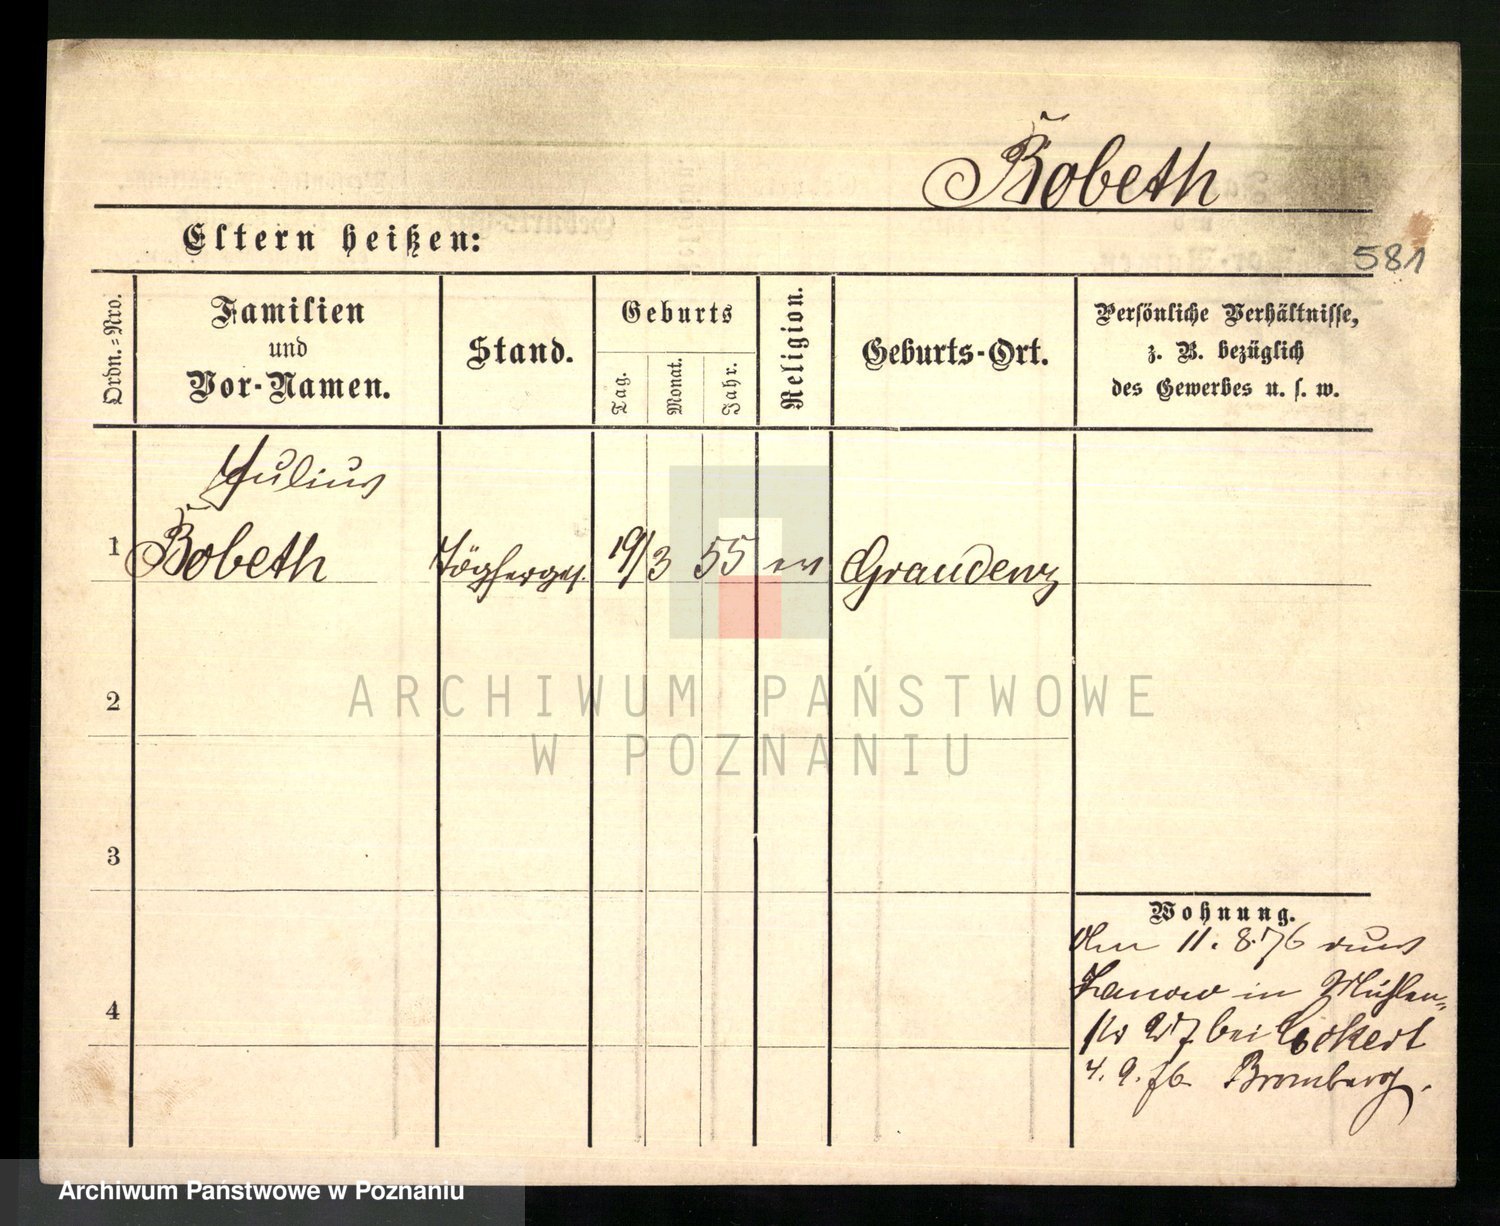 Bobeth
Eltern heißen:
581
Ordn.-Nro.
Familien
und
Vor-Namen.
Stand.
Geburts
Tag.
Monat.
Jahr.
Religion.
Geburts-Ort.
Persönliche Verhältnisse,
z. B. bezüglich
des Gewerbes u. s. w.
Julius
1 Bobeth Töpferges. 19/3 55 ev Graudenz
2
3
4
Wohnung.
Am 11. 8. 76 aus
Zanow in Mühlen-
str bei Eckert
4. 9. 76 Bromberg.
ARCHIWUM PAŃSTWOWE
W POZNANIU
Archiwum Państwowe w Poznaniu